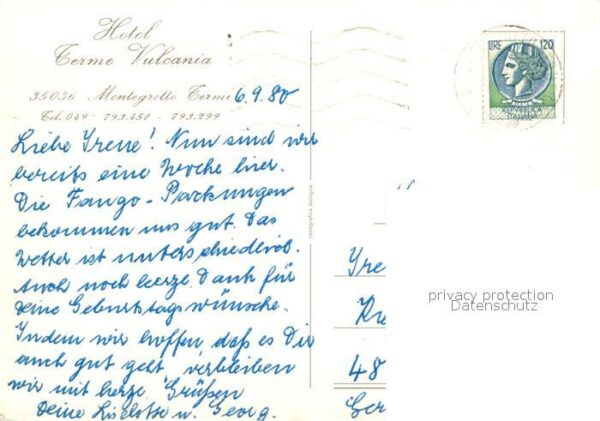 Hotel
Terme Vulcania
35036 Montegrotto Terme 6.9.80
Tel. 049 - 793.451 - 793.299
Liebe Irene! Nun sind wir
bereits eine Woche hier.
Die Fango-Packungen
bekommen uns gut. Das
Wetter ist unterschiedlich.
Auch noch herzl. Dank für
deine Geburtstagswünsche.
Indem wir hoffen, daß es Dir
auch gut geht, verbleiben
wir mit herzl. Grüßen
Deine Liselotte u. Georg.
LIRE 120
Ire
48
Ger
privacy protection
Datenschutz